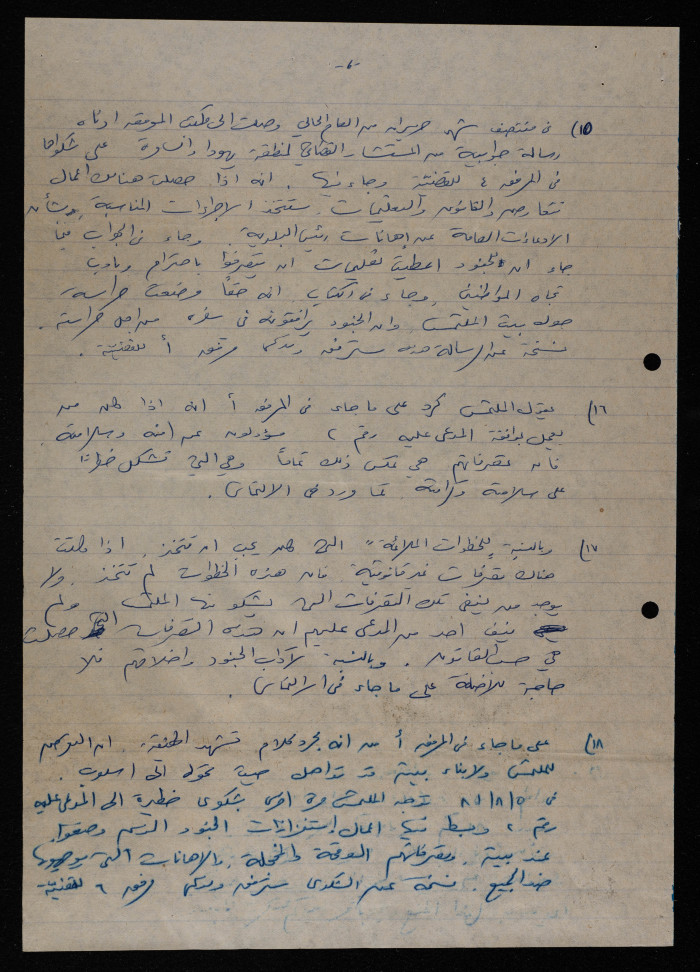 -٦-
١٥) في منتصف شهر حزيران من العام الحالي وصلت الى مكتب الموقعه ادناه
رسالة جوابية من المستشار القضائي لمنطقة يهودا والسامرة على شكواها
في المرفق ٤ للقضية وجاء فيها. انه اذا حصلت هنالك اعمال
تتعارض والقانون والتعليمات ستتخذ الاجراءات المناسبة، وبشأن
الادعاءات العامة عن اهانات رئيس البلدية. وجاء في الجواب
جاء ان الجنود اعطيت تعليمات ان يتصرفوا باحترام وبادب
تجاه المواطنين، وجاء في الكتاب انه حقا وضعت حراسة
حول بيت الملتمس وان الجنود يرافقونه في سفره من اجل حراسته.
نسخة عن الرسالة هذه سترفق وتدعى مرفق أ للقضية.
١٦) يقول الملتمس كرد على ما جاء في المرفق أ انه اذا كان من
يعمل بوافقة المدعى عليه رقم ٢ مسؤولون عن امنه وسلامته
فان تصرفاتهم هي عكس ذلك تماما وهي التي تشكل خطرا
على سلامته وكرامته كما ورد في الالتماس.
١٧) وبالنسبة "للخطوات الملائمة" التي كان يجب ان تتخذ، اذا كانت
هناك تصرفات غير قانونية، فان هذه الخطوات لم تتخذ ولا
يوجد من ينفي تلك التصرفات التي يشكو منها الملتمس ولم
ينف احد من المدعى عليهم ان هذه التصرفات التي حصلت
هي حسب القانون. وبالنسبة لآداب الجنود واخلاقهم فلا
حاجة للاضافة على ما جاء في الالتماس.
١٨) على ما جاء في المرفق أ من انه مجرد كلام تشهد الحقيقة، ان التعرض
للملتمس ولابناء بيته قد تواصل حيث تحول الى اسلوب.
في ٨١/٨/٥ توجه الملتمس مرة اخرى بشكوى خطيرة الى المدعى عليه
رقم ٢ وبسط فيها اعمال استفزازات الجنود الذين وضعوا
عند بيته وتصرفاتهم الوقحة والمخجلة والاهانات التي يوجهونها
ضد الجميع. نسخة عن الشكوى سترفق وتدعى مرفق ٦ للقضية